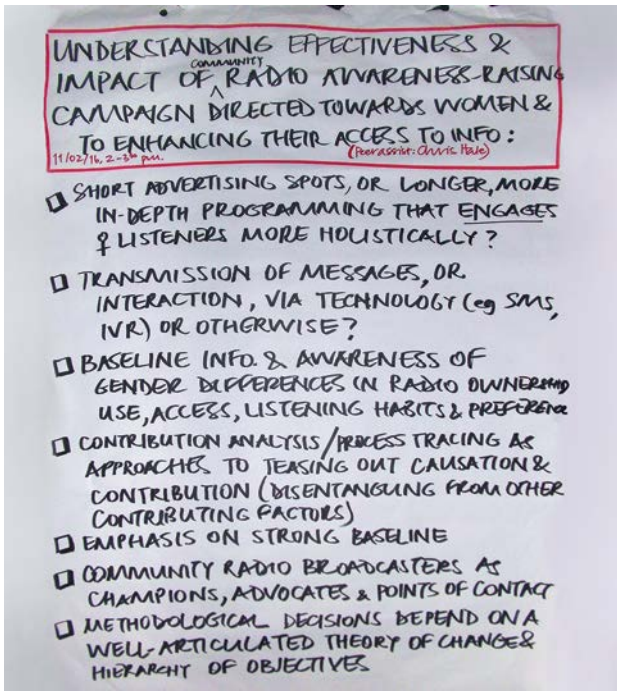 UNDERSTANDING EFFECTIVENESS &
COMMUNITY
IMPACT OF ^ RADIO AWARENESS-RAISING
CAMPAIGN DIRECTED TOWARDS WOMEN &
TO ENHANCING THEIR ACCESS TO INFO:
11/02/16, 2-3 pm. (Peer assist: Chris Hale)
□ SHORT ADVERTISING SPOTS, OR LONGER, MORE
IN-DEPTH PROGRAMMING THAT ENGAGES
♀ LISTENERS MORE HOLISTICALLY?
□ TRANSMISSION OF MESSAGES, OR
INTERACTION, VIA TECHNOLOGY (eg SMS,
IVR) OR OTHERWISE?
□ BASELINE INFO. & AWARENESS OF
GENDER DIFFERENCES IN RADIO OWNERSHIP
USE, ACCESS, LISTENING HABITS & PREFERENCE
□ CONTRIBUTION ANALYSIS/PROCESS TRACING AS
APPROACHES TO TEASING OUT CAUSATION &
CONTRIBUTION (DISENTANGLING FROM OTHER
CONTRIBUTING FACTORS)
□ EMPHASIS ON STRONG BASELINE
□ COMMUNITY RADIO BROADCASTERS AS
CHAMPIONS, ADVOCATES & POINTS OF CONTACT
□ METHODOLOGICAL DECISIONS DEPEND ON A
WELL-ARTICULATED THEORY OF CHANGE &
HIERARCHY OF OBJECTIVES